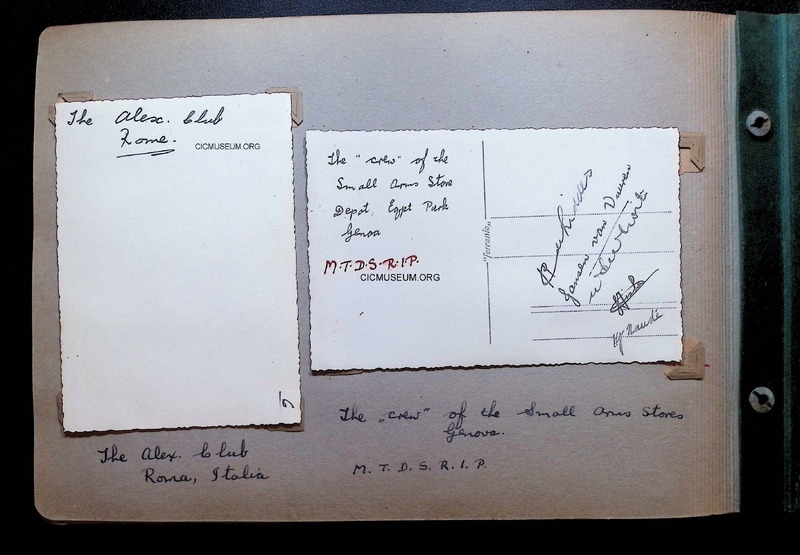 The Alex. Club
Rome.
CICMUSEUM.ORG
The "crew" of the
Small Arms Store
Depot, Egypt Park
Genoa
M.T.D.S.R.I.P.
CICMUSEUM.ORG
"Ferrania"
Jansen van Vuuren
Naudé
The Alex. Club
Roma, Italia
The „crew" of the Small Arms Stores
Genova.
M. T. D. S. R. I. P.